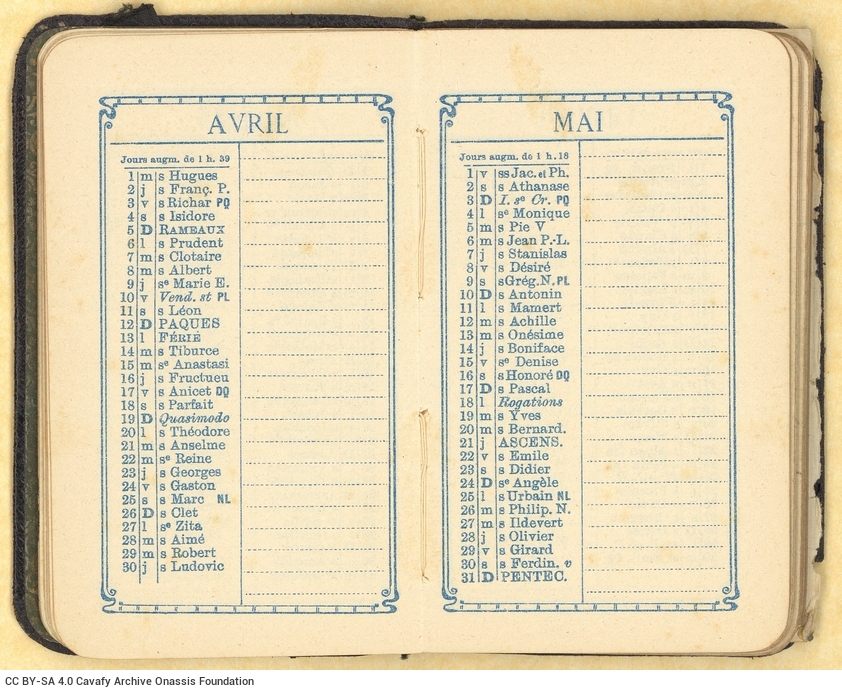 AVRIL
Jours augm. de 1 h. 39
1 m s Hugues
2 j s Franç. P.
3 v s Richar PQ
4 s s Isidore
5 D RAMEAUX
6 l s Prudent
7 m s Clotaire
8 m s Albert
9 j sᵉ Marie E.
10 v Vend. st PL
11 s s Léon
12 D PAQUES
13 l FÉRIÉ
14 m s Tiburce
15 m sᵉ Anastasi
16 j s Fructueu
17 v s Anicet DQ
18 s s Parfait
19 D Quasimodo
20 l s Théodore
21 m s Anselme
22 m sᵉ Reine
23 j s Georges
24 v s Gaston
25 s s Marc NL
26 D s Clet
27 l sᵉ Zita
28 m s Aimé
29 m s Robert
30 j s Ludovic
MAI
Jours augm. de 1 h. 18
1 v ss Jac. et Ph.
2 s s Athanase
3 D I. sᵉ Cr. PQ
4 l sᵉ Monique
5 m s Pie V
6 m s Jean P.-L.
7 j s Stanislas
8 v s Désiré
9 s s Grég. N. PL
10 D s Antonin
11 l s Mamert
12 m s Achille
13 m s Onésime
14 j s Boniface
15 v sᵉ Denise
16 s s Honoré DQ
17 D s Pascal
18 l Rogations
19 m s Yves
20 m s Bernard.
21 j ASCENS.
22 v s Emile
23 s s Didier
24 D sᵉ Angèle
25 l s Urbain NL
26 m s Philip. N.
27 m s Ildevert
28 j s Olivier
29 v s Girard
30 s s Ferdin. v
31 D PENTEC.
CC BY-SA 4.0 Cavafy Archive Onassis Foundation